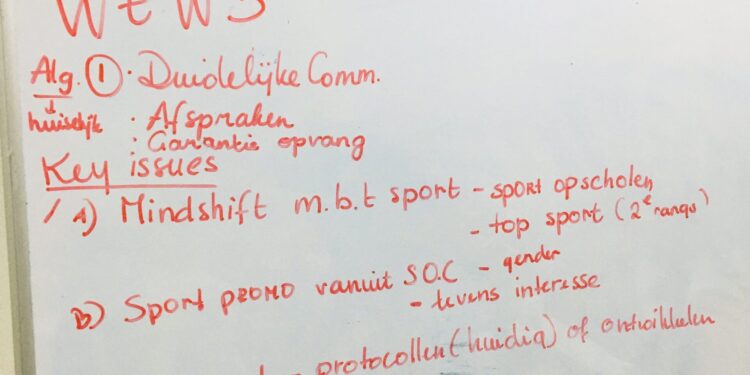 Alg. ① · Duidelijke Comm.
huiselijk · Afspraken
· Garantie opvang
Key issues
/ A) Mindshift m.b.t sport - sport op scholen
- top sport (2e rangs)
B) Sport promo vanuit S.O.C - gender
- tevens interesse
- protocollen (huidig) of ontwikkelen